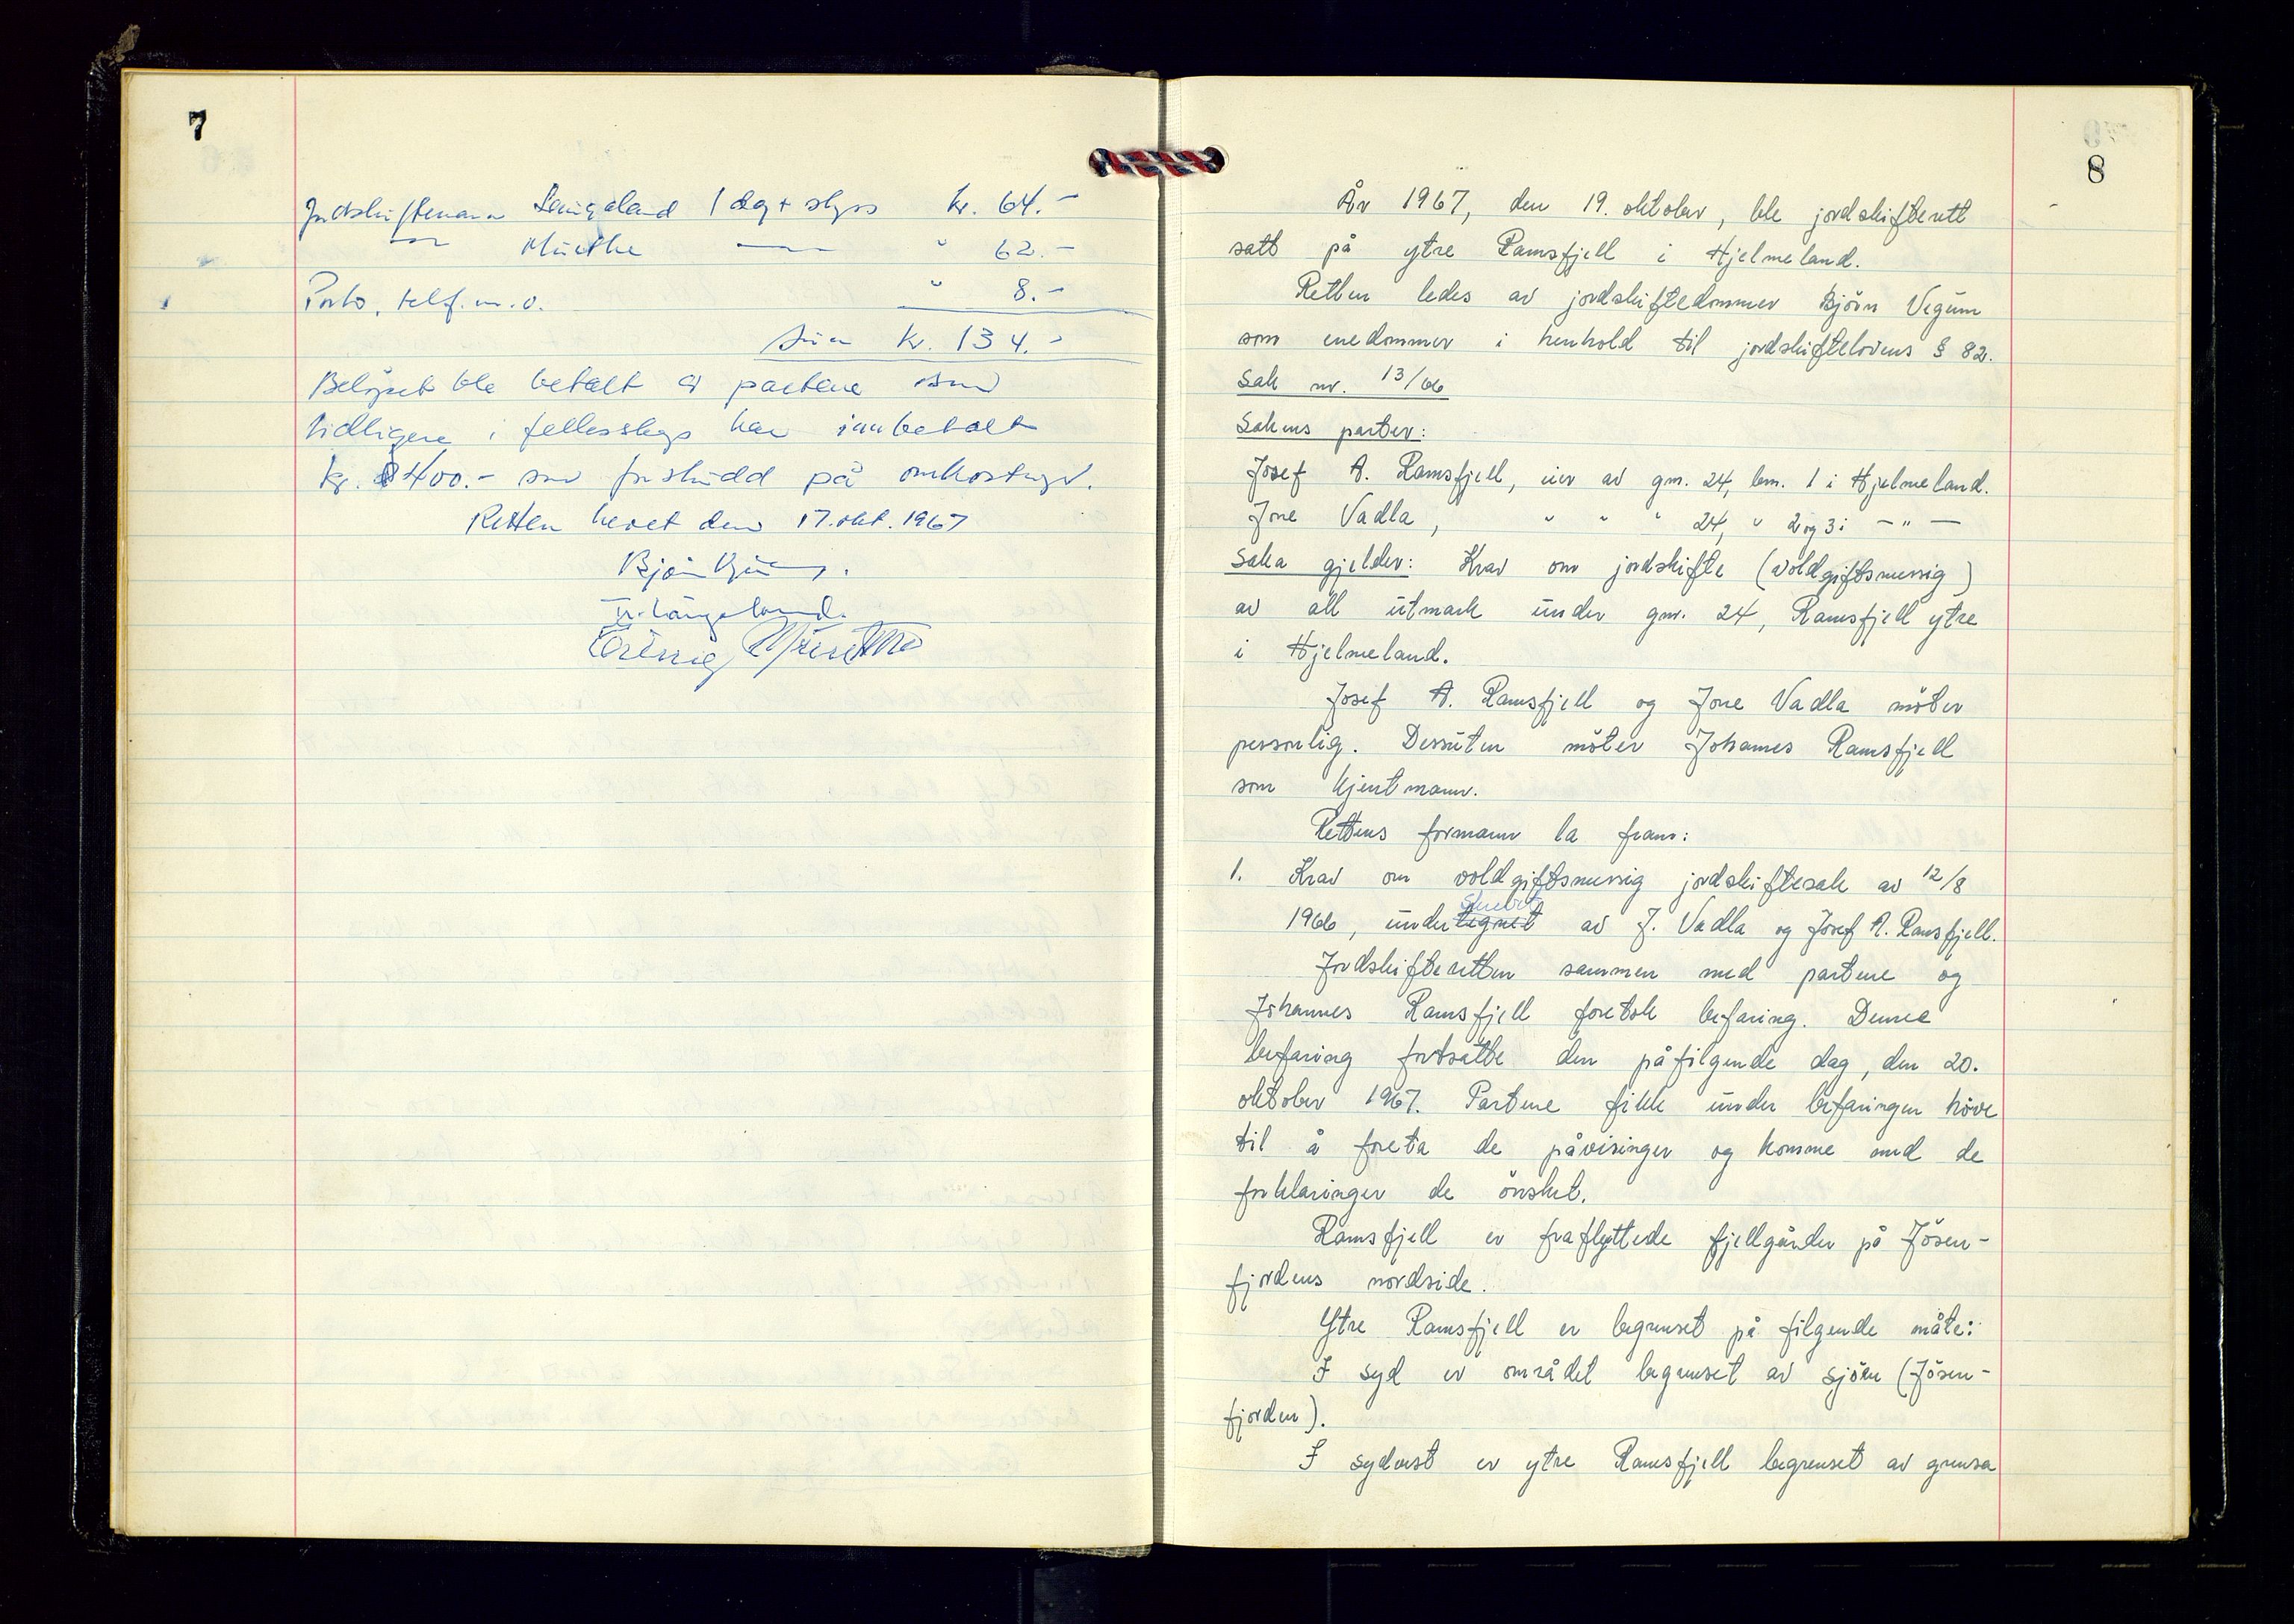 7
Jordskiftemann Langeland 1 dag + skyss kr. 64.-
-"- Müethe -"- " 62.-
Porto, telf. m.v. " 8.-
Sum kr. 134.-
Beløpet ble betalt av partene som
tidligere i fellesskap har innbetalt
kr. 400.- som forskudd på omkostnger.
Retten hevet den 17. okt. 1967
Bjørn Vigum.
Langeland.
8
År 1967, den 19. oktober, ble jordskifterett
satt på ytre Ramsfjell i Hjelmeland.
Retten ledes av jordskiftedommer Bjørn Vigum
som enedommer i henhold til jordskiftelovens § 82.
Sak nr. 13/66
Sakens parter:
Josef A. Ramsfjell, eier av gnr. 24, bnr. 1 i Hjelmeland.
Jone Vadla, " " " 24, " 2 og 3 i -"-
Saka gjelder: Krav om jordskifte (voldgiftsmessig)
av all utmark under gnr. 24, Ramsfjell ytre
i Hjelmeland.
Josef A. Ramsfjell og Jone Vadla møter
personlig. Dessuten møter Johannes Ramsfjell
som kjentmann.
Rettens formann la fram:
1. Krav om voldgiftsmessig jordskiftesak av 12/8
skrevet
1966, undertegnet av J. Vadla og Josef A. Ramsfjell.
Jordskifteretten sammen med partene og
Johannes Ramsfjell foretok befaring. Denne
befaring fortsatte den påfølgende dag, den 20.
oktober 1967. Partene fikk under befaringen høve
til å foreta de påvisinger og komme med de
forklaringer de ønsket.
Ramsfjell er fraflyttede fjellgårder på Jøsen-
fjordens nordside.
Ytre Ramsfjell er begrenset på følgende måte:
I syd er området begrenset av sjøen (Jøsen-
fjorden).
I sydvest er ytre Ramsfjell begrenset av grensa